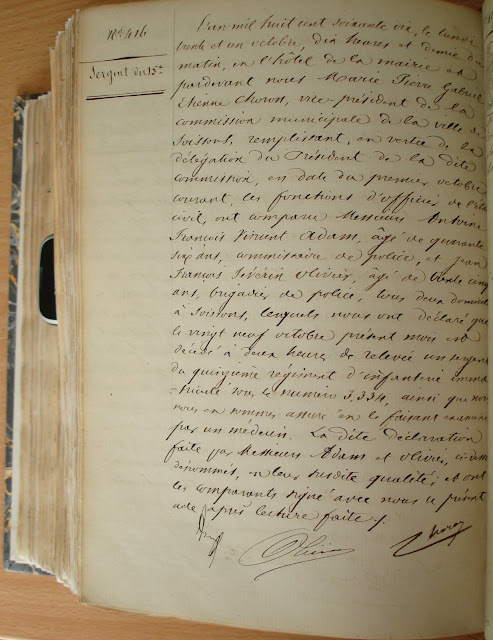 N° 416
Sergent du 15e
L'an mil huit cent soixante dix, le lundi
trente et un octobre, dix heures et demie du
matin, en l'hôtel de la mairie et
pardevant nous Marie Pierre Gabriel
Etienne Choron, vice-président de la
commission municipale de la ville de
Soissons, remplissant, en vertu de la
délégation du Président de la dite
commission, en date du premier octobre
courant, les fonctions d'officier de l'état
civil, ont comparu Messieurs Antoine
François Vincent Adam, âgé de quarante
six ans, commissaire de police, et Jean
François Séverin Olivier, âgé de trente cinq
ans, brigadier de police, tous deux domiciliés
à Soissons, lesquels nous ont déclaré que
le vingt neuf octobre présent mois est
décédé à deux heures de relevée un sergent
du quinzième régiment d'infanterie imma
-triculé sous le numéro 3,334, ainsi que nous
nous en sommes assuré en le faisant examiner
par un médecin. La dite déclaration
faite par Messieurs Adam et Olivier, ci-dessus
dénommés, en leur susdite qualité; et ont
les comparants signé avec nous le présent
acte après lecture faite ./.
Olivier
Choron